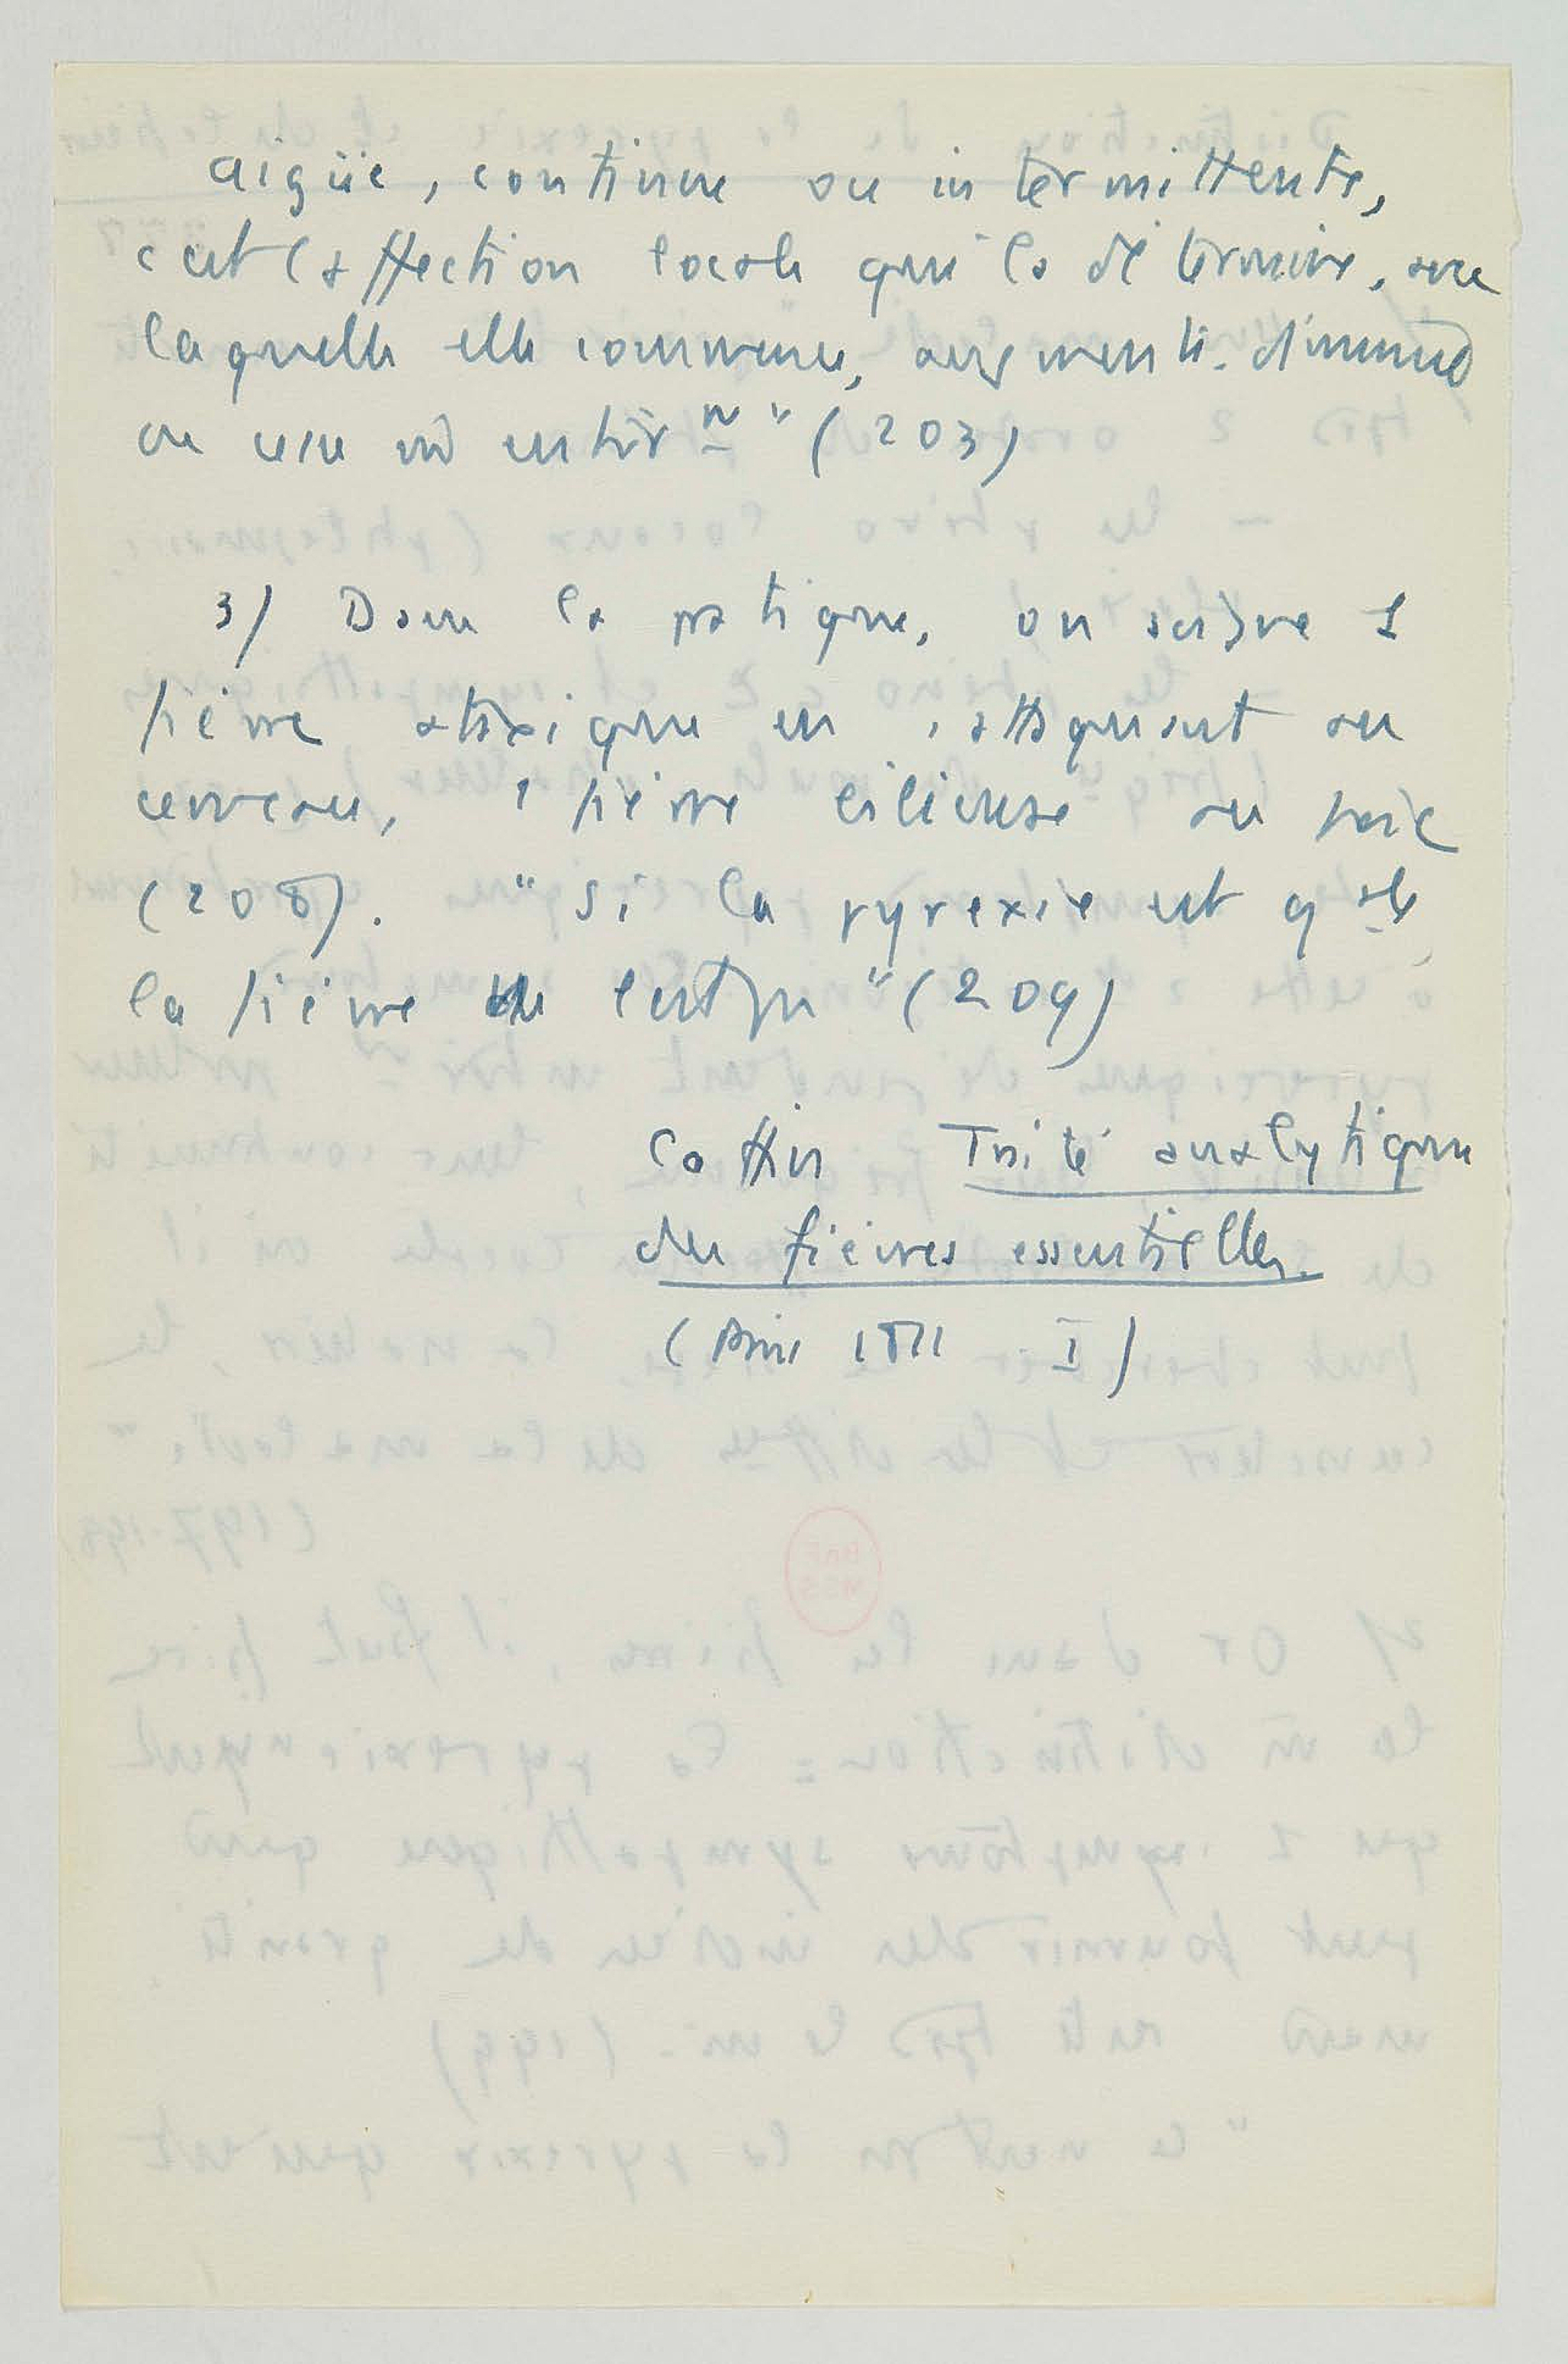 aigüe, continue ou intermittente,
c'est l'affection locale qui la détermine, avec
laquelle elle commence, augmente, diminue
ou cesse entièr^nt" (203)
3/ Dans la pratique, on soigne 1
fièvre ataxique en s'attaquant au
cerveau, 1 fièvre bilieuse au foie
(208). "Si la pyrexie est q^ale,
la fièvre ne l'est pas" (209)
Caffin Traité analytique
des fièvres essentielles.
(Paris 1811 I)